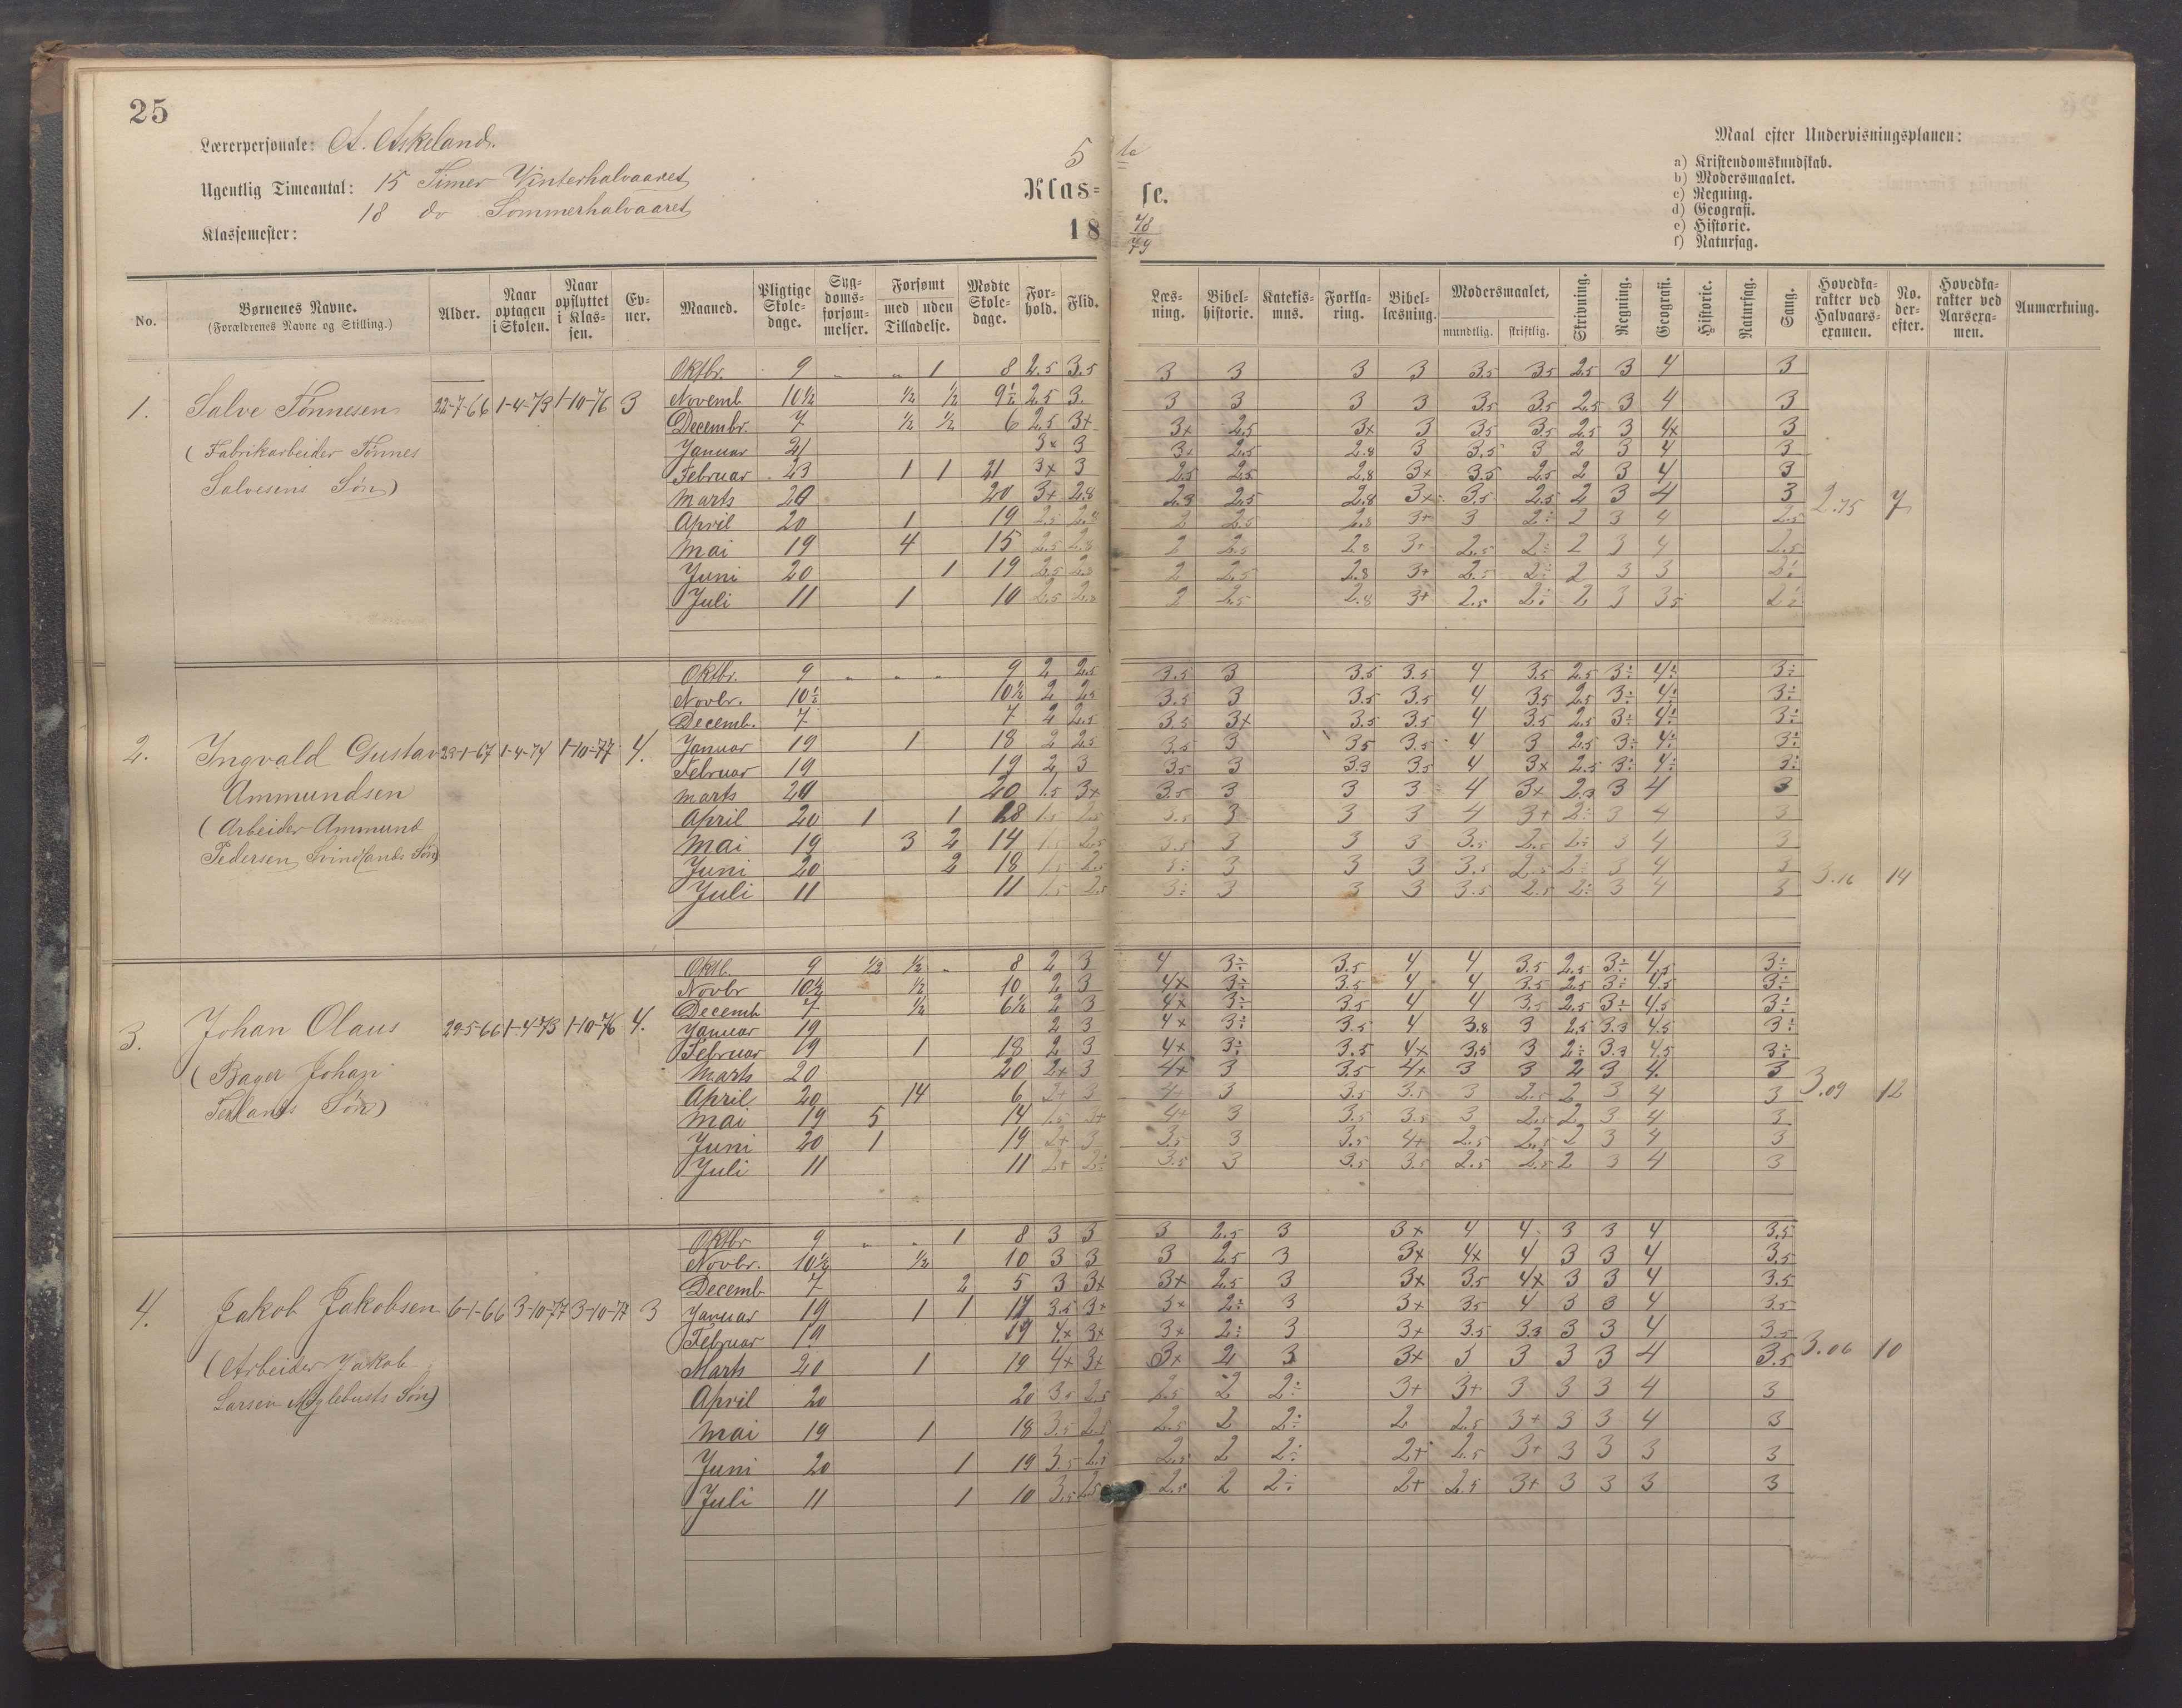 25
Lærerpersonale: A. Askeland.
Ugentlig Timeantal: 15 Timer Vinterhalvaaret
18 do Sommerhalvaaret
Klassemester:
5 te
Klas= se.
18 78/79
Maal efter Undervisningsplanen:
a) Kristendomskundskab.
b) Modersmaalet.
c) Regning.
d) Geografi.
e) Historie.
f) Naturfag.
No. Børnenes Navne. (Forældrenes Navne og Stilling.) Alder. Naar optagen i Skolen. Naar opflyttet i Klassen. Evner. Maaned. Pligtige Skoledage. Sygdomsforsømmelser. Forsømt med uden Tilladelse. Mødte Skoledage. Forhold. Flid. Læsning. Bibelhistorie. Katekismus. Forklaring. Bibellæsning. Modersmaalet, mundtlig. skriftlig. Skrivning. Regning. Geografi. Historie. Naturfag. Sang. Hovedkarakter ved Halvaarsexamen. No. derefter. Hovedkarakter ved Aarsexamen. Anmærkning.
Oktbr. 9 „ „ 1 8 2.5 3.5 3 3 3 3 3.5 3.5 2.5 3 4 3
1. Salve Tønnesen 22-7-66 1-4-73 1-10-76 3 Novemb 10½ ½ ½ 9½ 2.5 3. 3 3 3 3 3.5 3.5 2.5 3 4 3
Decembr. 7 ½ ½ 6 2.5 3+ 3x 2.5 3x 3 3.5 3.5 2.5 3 4x 3
(Fabrikarbeider Tønnes Januar 21 3x 3 3+ 2.5 2.8 3 3.5 3 2 3 4 3
Salvesens Søn) Februar 23 1 1 21 3x 3 2.5 2.5 2.8 3+ 3.5 2.5 2 3 4 3
Marts 20 20 3+ 2.8 2.3 2.5 2.8 3x 3.5 2.5 2 3 4 3 2.75 7
April 20 1 19 2.5 2.8 2 2.5 2.8 3+ 3 2÷ 2 3 4 2.5
Mai 19 4 15 2.5 2.8 2 2.5 2.8 3+ 2.5 2÷ 2 3 4 2.5
Juni 20 1 19 2.5 2.8 2 2.5 2.8 3+ 2.5 2÷ 2 3 3 2÷
Juli 11 1 10 2.5 2.8 2 2.5 2.8 3+ 2.5 2÷ 2 3 3.5 2÷
Oktbr. 9 „ „ „ 9 2 2.5 3.5 3 3.5 3.5 4 3.5 2.5 3÷ 4÷ 3÷
Novbr. 10½ 10½ 2 2.5 3.5 3 3.5 3.5 4 3.5 2.5 3÷ 4÷ 3÷
Decemb. 7 7 2 2.5 3.5 3x 3.5 3.5 4 3.5 2.5 3÷ 4÷ 3÷
2. Ingvald Gustav 23-1-67 1-4-74 1-10-77 4. Januar 19 1 18 2 2.5 3.5 3 3.5 3.5 4 3 2.5 3÷ 4÷ 3÷
Februar 19 19 2 3 3.5 3 3.3 3.5 4 3x 2.5 3÷ 4÷ 3÷
Ammundsen Marts 20 20 1.5 3x 3.5 3 3 3 4 3x 2.3 3 4 3
(Arbeider Ammund April 20 1 1 18 1.5 2.5 3.5 3 3 3 4 3+ 2÷ 3 4 3
Pedersen Svindlands Søn) Mai 19 3 2 14 1.5 2.5 3.5 3 3 3 3.5 2.5 2÷ 3 4 3
Juni 20 2 18 1.5 2.5 3÷ 3 3 3 3.5 2.5 2÷ 3 4 3 3.16 14
Juli 11 11 1.5 2.5 3÷ 3 3 3 3.5 2.5 2÷ 3 4 3
Oktb. 9 ½ ½ „ 8 2 3 4 3÷ 3.5 4 4 3.5 2.5 3÷ 4.5 3÷
Novbr 10½ ½ 10 2 3 4x 3÷ 3.5 4 4 3.5 2.5 3÷ 4.5 3÷
Decemb 7 ½ 6½ 2 3 4x 3÷ 3.5 4 4 3.5 2.5 3÷ 4.5 3÷
3. Johan Olaus 29-5-66 1-4-73 1-10-76 4. Januar 19 2 3 4x 3÷ 3.5 4 3.8 3 2.5 3.3 4.5 3÷
Februar 19 1 18 2 3 4x 3÷ 3.5 4x 3.5 3 2÷ 3.3 4.5 3÷
(Bager Johan Marts 20 20 2x 3 4x 3 3.5 4x 3 3 2 3 4. 3 3.09 12
Søn) April 20 14 6 2+ 3 4+ 3 3.5 3.5 3 2.5 2 3 4 3
Mai 19 5 14 1.5 3+ 4+ 3 3.5 3.5 3 2.5 2 3 4 3
Juni 20 1 19 2+ 3 3.5 3 3.5 4+ 2.5 2.5 2 3 4 3
Juli 11 11 2+ 2÷ 3.5 3 3.5 3.5 2.5 2.5 2 3 4 3
Oktbr 9 „ „ 1 8 3 3 3 2.5 3 3x 4 4 3 3 4 3.5
Novbr. 10½ ½ 10 3 3 3 2.5 3 3x 4x 4 3 3 4 3.5
Decemb 7 2 5 3 3x 3x 2.5 3 3x 3.5 4x 3 3 4 3.5
4. Jakob Jakobsen 6-1-66 3-10-77 3-10-77 3 Januar 19 1 1 17 3.5 3x 3x 2÷ 3 3x 3.5 4 3 3 4 3.5
Februar 19 19 4x 3x 3x 2÷ 3 3x 3.5 3.3 3 3 4 3.5
(Arbeider Jakob Marts 20 1 19 4x 3x 3x 2 3 3x 3 3 3 3 4 3.5 3.06 10
Larsen Søn) April 20 20 3.5 2.5 2.5 2 2÷ 3+ 3+ 3 3 3 4 3
Mai 19 1 18 3.5 2.5 2.5 2 2÷ 2 2.5 3+ 3 3 4 3
Juni 20 1 19 3.5 2.5 2.5 2 2÷ 2+ 2.5 3+ 3 3 3 3
Juli 11 1 10 3.5 2.5 2.5 2 2÷ 2+ 2.5 3+ 3 3 3 3